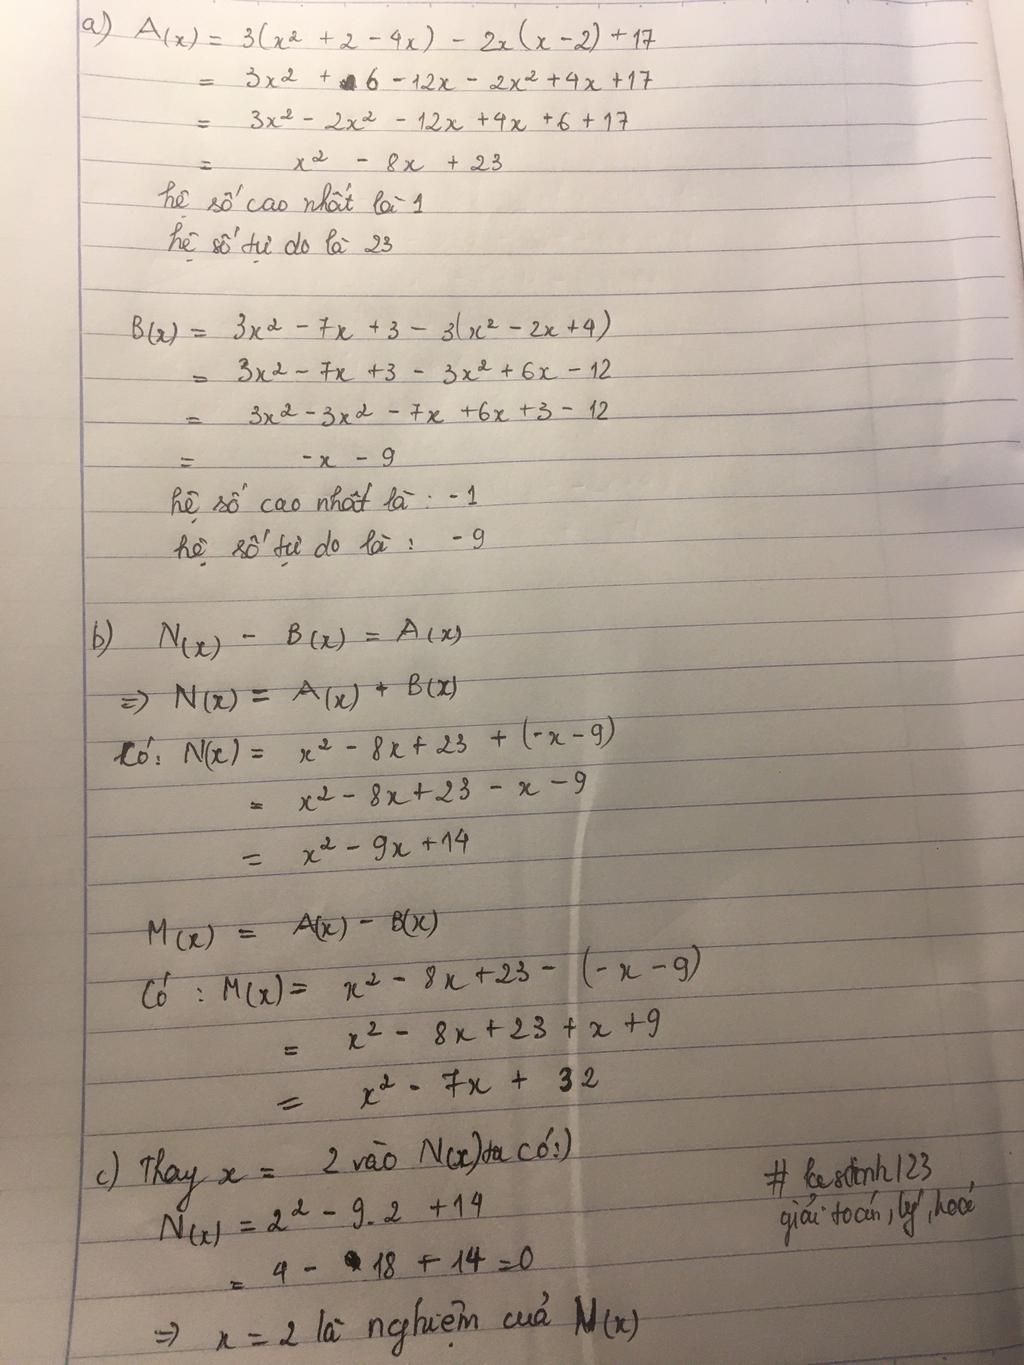 a) A(x) = 3(x² + 2 - 4x) - 2x(x - 2) + 17
= 3x² + 6 - 12x - 2x² + 4x + 17
= 3x² - 2x² - 12x + 4x + 6 + 17
= x² - 8x + 23
hệ số cao nhất là 1
hệ số tự do là 23
B(x) = 3x² - 7x + 3 - 3(x² - 2x + 4)
= 3x² - 7x + 3 - 3x² + 6x - 12
= 3x² - 3x² - 7x + 6x + 3 - 12
= -x - 9
hệ số cao nhất là : -1
hệ số tự do là : -9
b) N(x) - B(x) = A(x)
=> N(x) = A(x) + B(x)
Có: N(x) = x² - 8x + 23 + (-x - 9)
= x² - 8x + 23 - x - 9
= x² - 9x + 14
M(x) = A(x) - B(x)
Có : M(x) = x² - 8x + 23 - (-x - 9)
= x² - 8x + 23 + x + 9
= x² - 7x + 32
c) Thay x = 2 vào N(x) ta có:)
N(x) = 2² - 9.2 + 14
= 4 - 18 + 14 = 0
=> x = 2 là nghiệm cuả N(x)
giải toán, lý, hoá